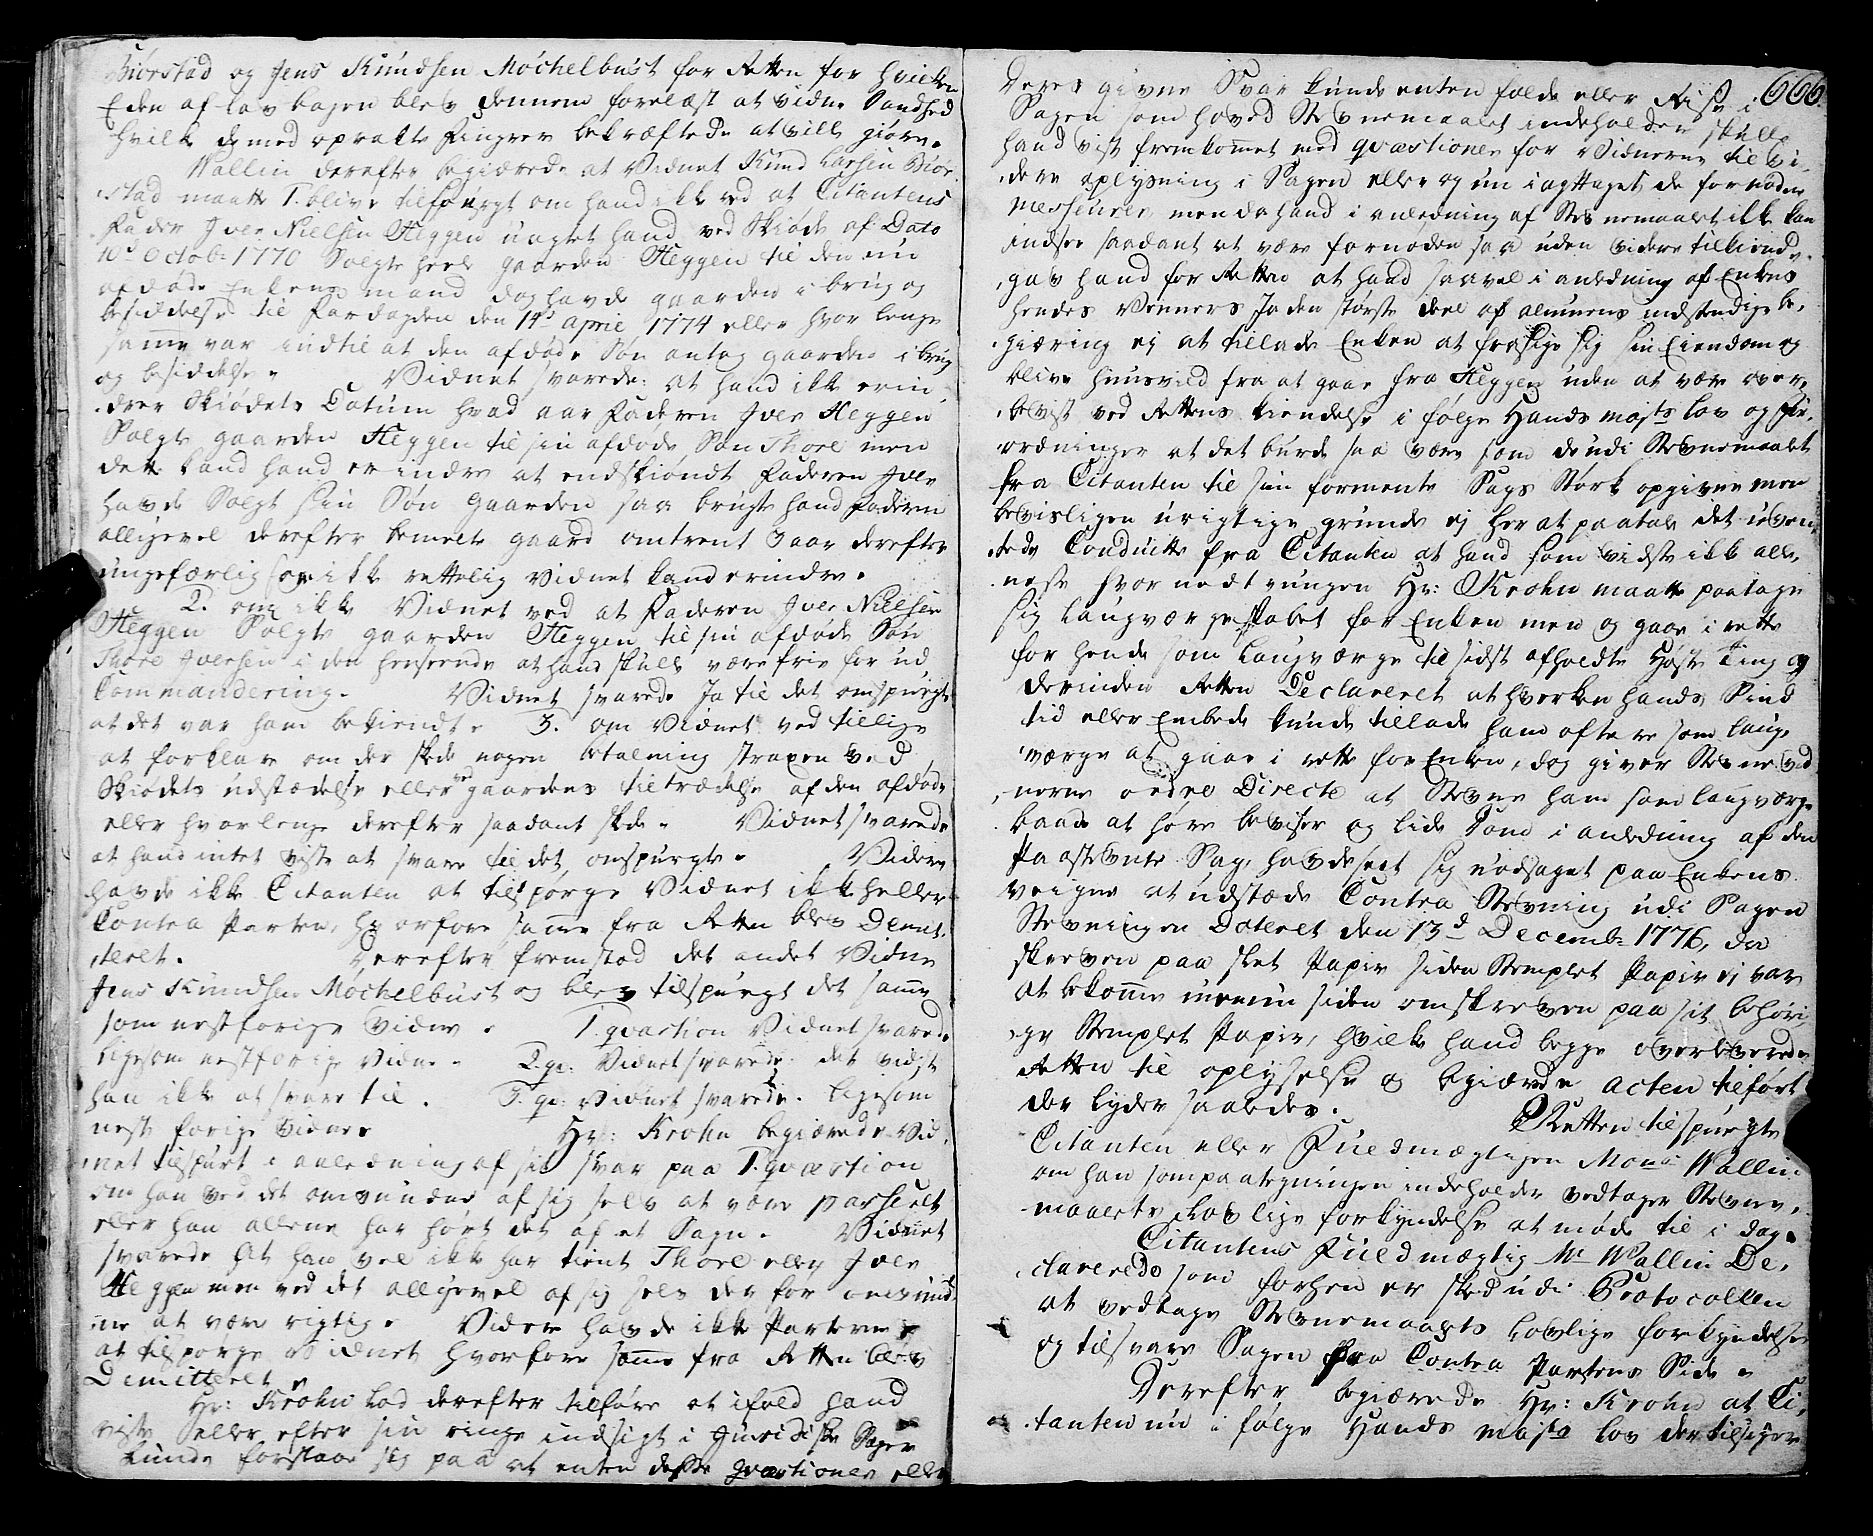 Biørstad og Jens Knudsen Möchelbust for Retten for hvilken
Eden af lov bogen blev dennem forelæst at vidne Sandhed
hvilke de med oprakte Fingrer bekræftede at ville giøre.
Wallin derefter begiærede at Vidnet Knud Larsen Biør-
stad maatte 1. blive tilspurgt om hand ikke ved at Citantens
Fader Iver Nielsen Heggen uagtet hand ved Skiøde af Dato
10de Octob: 1770 Solgte heele gaarden Heggen til den nu
afdøde Enkens mand dog havde gaarden i brug og
besiddelse til Fardagen den 14de April 1774 eller hvor lenge
samme var indtil at den afdøde Søn antog gaarden i brug
og besiddelse. Vidnet svarede: at hand ikke erin-
drer Skiødets Datum hvad aar Faderen Iver Heggen
Solgte gaarden Heggen til sin afdøde Søn Thore men
dette kand hand erindre at endskiøndt Faderen Iver
havde Solgt sin Søn Gaarden saa brugte hand Faderen
alligevel derefter bemelte gaard omtrent 3 aar derefter
ungefærlig som ikke rettelig Vidnet kand erindre.
2. om ikke Vidnet ved at Faderen Iver Nielsen
Heggen Solgte gaarden Heggen til sin afdøde Søn
Thore Iversen i den henseende at hand skulle være frie for ud
Commandering. Vidnet svarede Ja til det omspurgte
at det var ham bekiendt. 3. om Vidnet ved tillige
at forklare om der skede nogen betalning straxen ved
Skiødets udstædelse eller ved gaardens tiltrædelse af den afdøde
eller hvor lenge derefter saadant skede. Vidnet svarede
at hand intet viste at svare til det omspurgte. Videre
havde ikke Citanten at tilspørge Vidnet ikke heller
Contra Parten, hvorfore samme fra Retten blev Demit-
teret. Derefter fremstod det andet Vidne
Jens Knudsen Möchelbust og blev tilspurgt det samme
som nestforige Vidne. 1. qvæstion Vidnet svarede
ligesom nestforige Vidne. 2. qv: Vidnet svarede det vidste
han ikke at svare til. 3. qv: Vidnet svarede. ligesom
neste forige Vidne. Hr: Krohn begiærede Vid-
net tilspurt i anledning af sit svar paa 1. qvæstion
om han ved det omvundne af sig selv at være passeret
eller han allene har hørt det af et Sagn. Vidnet
svarede At han vel ikke har tient Thore eller Iver
Heggen men ved det alligevel af sig selv derfor omvund-
ne at være rigtig. Videre havde ikke Parterne
at tilspørge Vidnet hvorfore samme fra Retten blev
Demitteret.
Hr: Krohn Lod derefter tilføre at ifald hand
viste eller efter sin ringe indsigt i Juridiske Sager
kunde forstaae sig paa at enten disse qvæstioner eller
666.
Deres givne Svar kunde enten fælde eller Reise i
Sagen som hoved Stevnemaalet indeholder skulle
hand vist fremkommet med qvæstioner for Vidnerne til vi-
dere oplysning i Sagen eller og nu iagttaget de fornødne
messeurer, men da hand i anledning af Stevnemaalet ikke kan
indsee saadant at være fornøden saa uden videre tilkiende-
gav hand for Retten at hand saavel i anledning af Enkens
hendes Venners Ja den største deel af almuens indstendige be-
giæring ej at tillade Enken at frasige sig sin Eiendom og
blive huusvild fra at gaae fra Heggen uden at være over-
beviist ved Rettens kiendelse i følge Hands Majts lov og For-
ordninger at det burde saa være som de udi Stevnemaalet
fra Citanten til sin formente Sags Størk opgivne men
bevisligen urigtige grunde ej her at paatale det uven-
tede Conduitte fra Citanten at hand som vidste ikke alle-
neste hvor nødtvungen Hr: Krohn maatte paatage
sig laugværgeskabet for Enken men og gaae i rette
for hende som laugværge til sidst afholdte Høste Ting og
derinden Retten Declareret at hverken hands Sind
tid eller Embede kunde tillade ham oftere som laug-
værge at gaae i rette for Enken, dog giver Stevnevid-
nerne ordre Directe at Stevne ham som laugværge
baade at høre beviser og lide Dom i anledning af den
Paastevnte Sag, havde seet sig nødsaget paa Enkens
veigne at udstæde Contra Stevning udi Sagen
Stevningen Dateret den 13de Decemb: 1776, da
skreven paa slet Papir siden Stemplet Papir ej var
at bekomme men nu siden omskreven paa sit behøri-
ge Stemplet Papir, hvilke hand begge overleverede
Retten til oplyselse og begiærede acten tilført
der lyder saaledes. Retten tilspurgte
Citanten eller Fuldmægtigen Monsr Wallin
om han som paategningen indeholder vedtager Stevne-
maalets Lovlige forkyndelse at møde til i dag.
Citantens Fuldmægtig Mr Wallin De-
clarerede som forhen er sked udi Protocollen
at vedtage Stevnemaalets Lovlige forkyndelse
og tilsvare Sagen fra Contra Partens Side.
Derefter begiærede Hr: Krohn at Ci-
tanten nu i følge Hands Majts lov der tilsiger